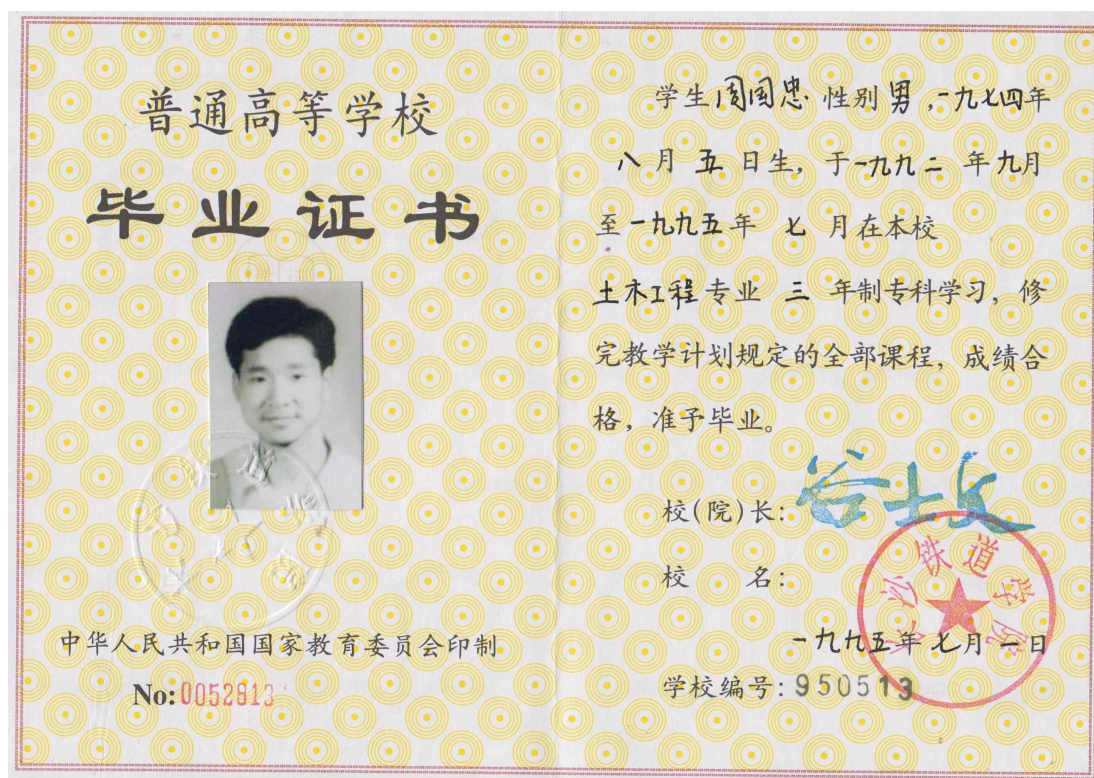 普通高等学校
毕业证书
中华人民共和国国家教育委员会印制
No:0052913
学生周国忠 性别男，一九七四年
八月五日生，于一九九二年九月
至一九九五年七月在本校
土木工程专业 三 年制专科学习，修
完教学计划规定的全部课程，成绩合
格，准予毕业。
校(院)长：谷士文
校 名：
长沙铁道学院
一九九五年七月一日
学校编号：950513